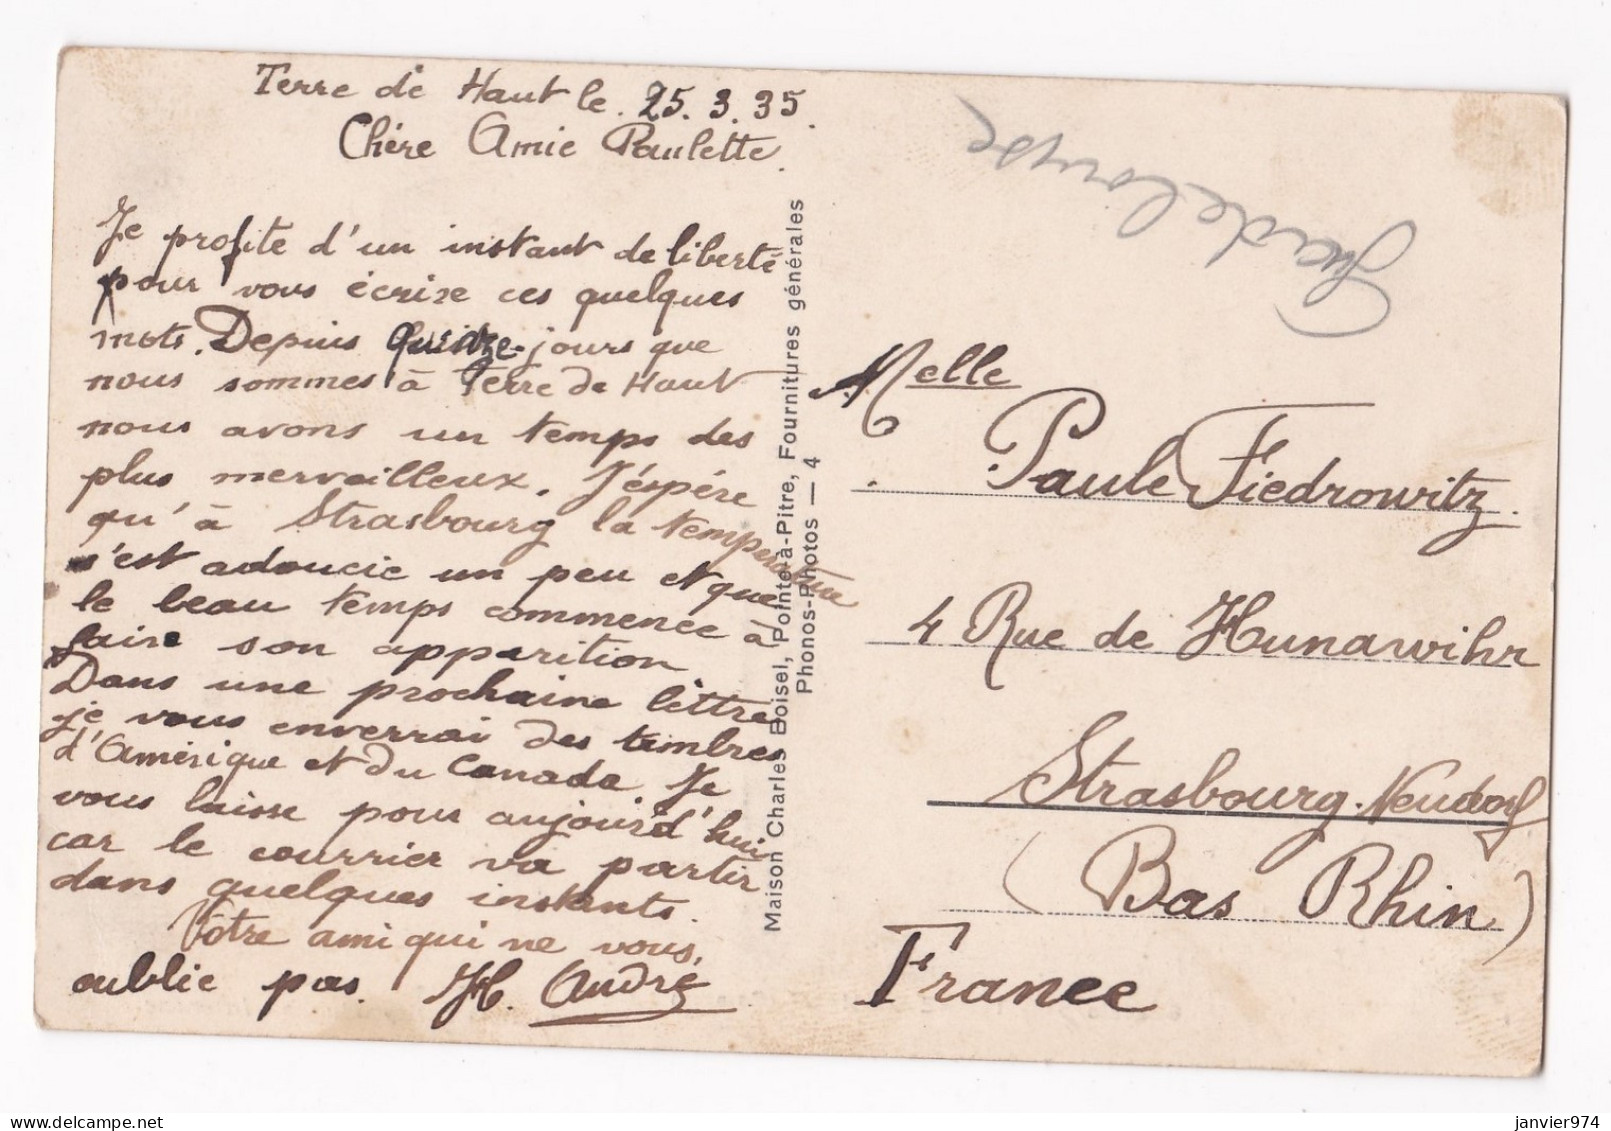 Terre de Haut le 25.3.35.
Chère Amie Paulette.
Je profite d'un instant de liberté
pour vous écrire ces quelques
mots. Depuis Quinze jours que
nous sommes à Terre de Haut
nous avons un temps des
plus merveilleux. J'éspére
qu'à Strasbourg la temperature
s'est adoucie un peu et que
le beau temps commence à
faire son apparition
Dans une prochaine lettre
je vous enverrai des timbres
d'Amérique et du Canada Je
vous laisse pour aujourd'hui
car le courrier va partir
dans quelques instants.
Votre ami qui ne vous
oublie pas. H. André
Maison Charles Boisel, Pointe-à-Pitre, Fournitures générales
Phonos-Photos — 4
Guadeloupe
Melle
Paule Fiedrowitz.
4 Rue de Hunawihr
Strasbourg. Neudorf
(Bas Rhin)
France
janvier974